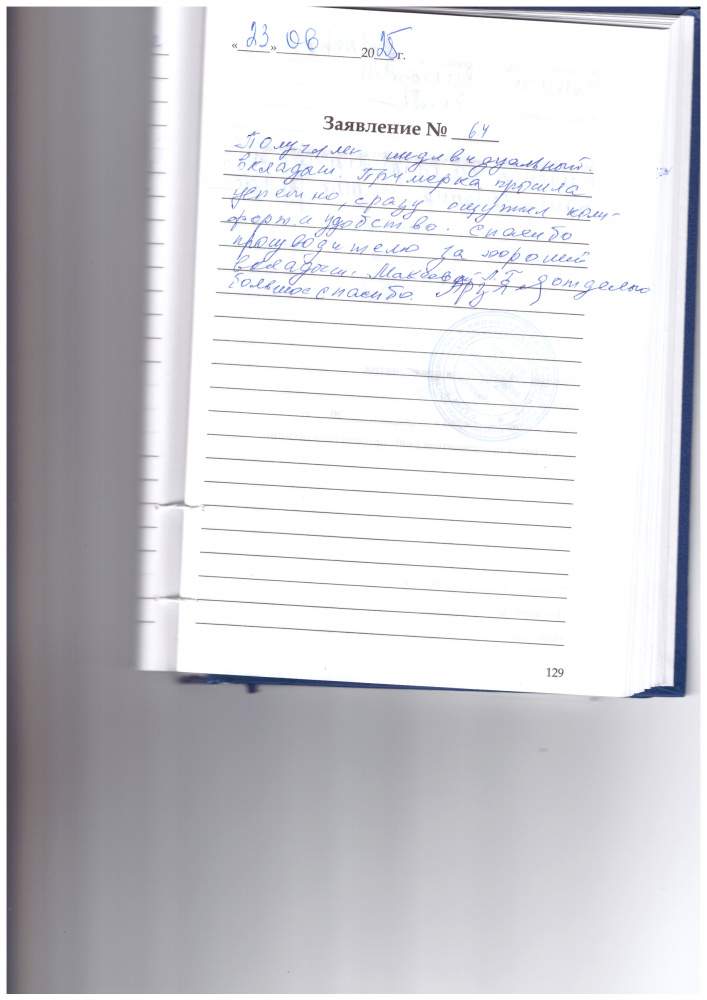 «23» 06 2025 г.
Заявление № 64
Получен индивидуальный
вкладыш. Примерка прошла
успешно, сразу ощутил ком-
форт и удобство. Спасибо
производителю за хороший
вкладыш. отдельно
большое спасибо.
129